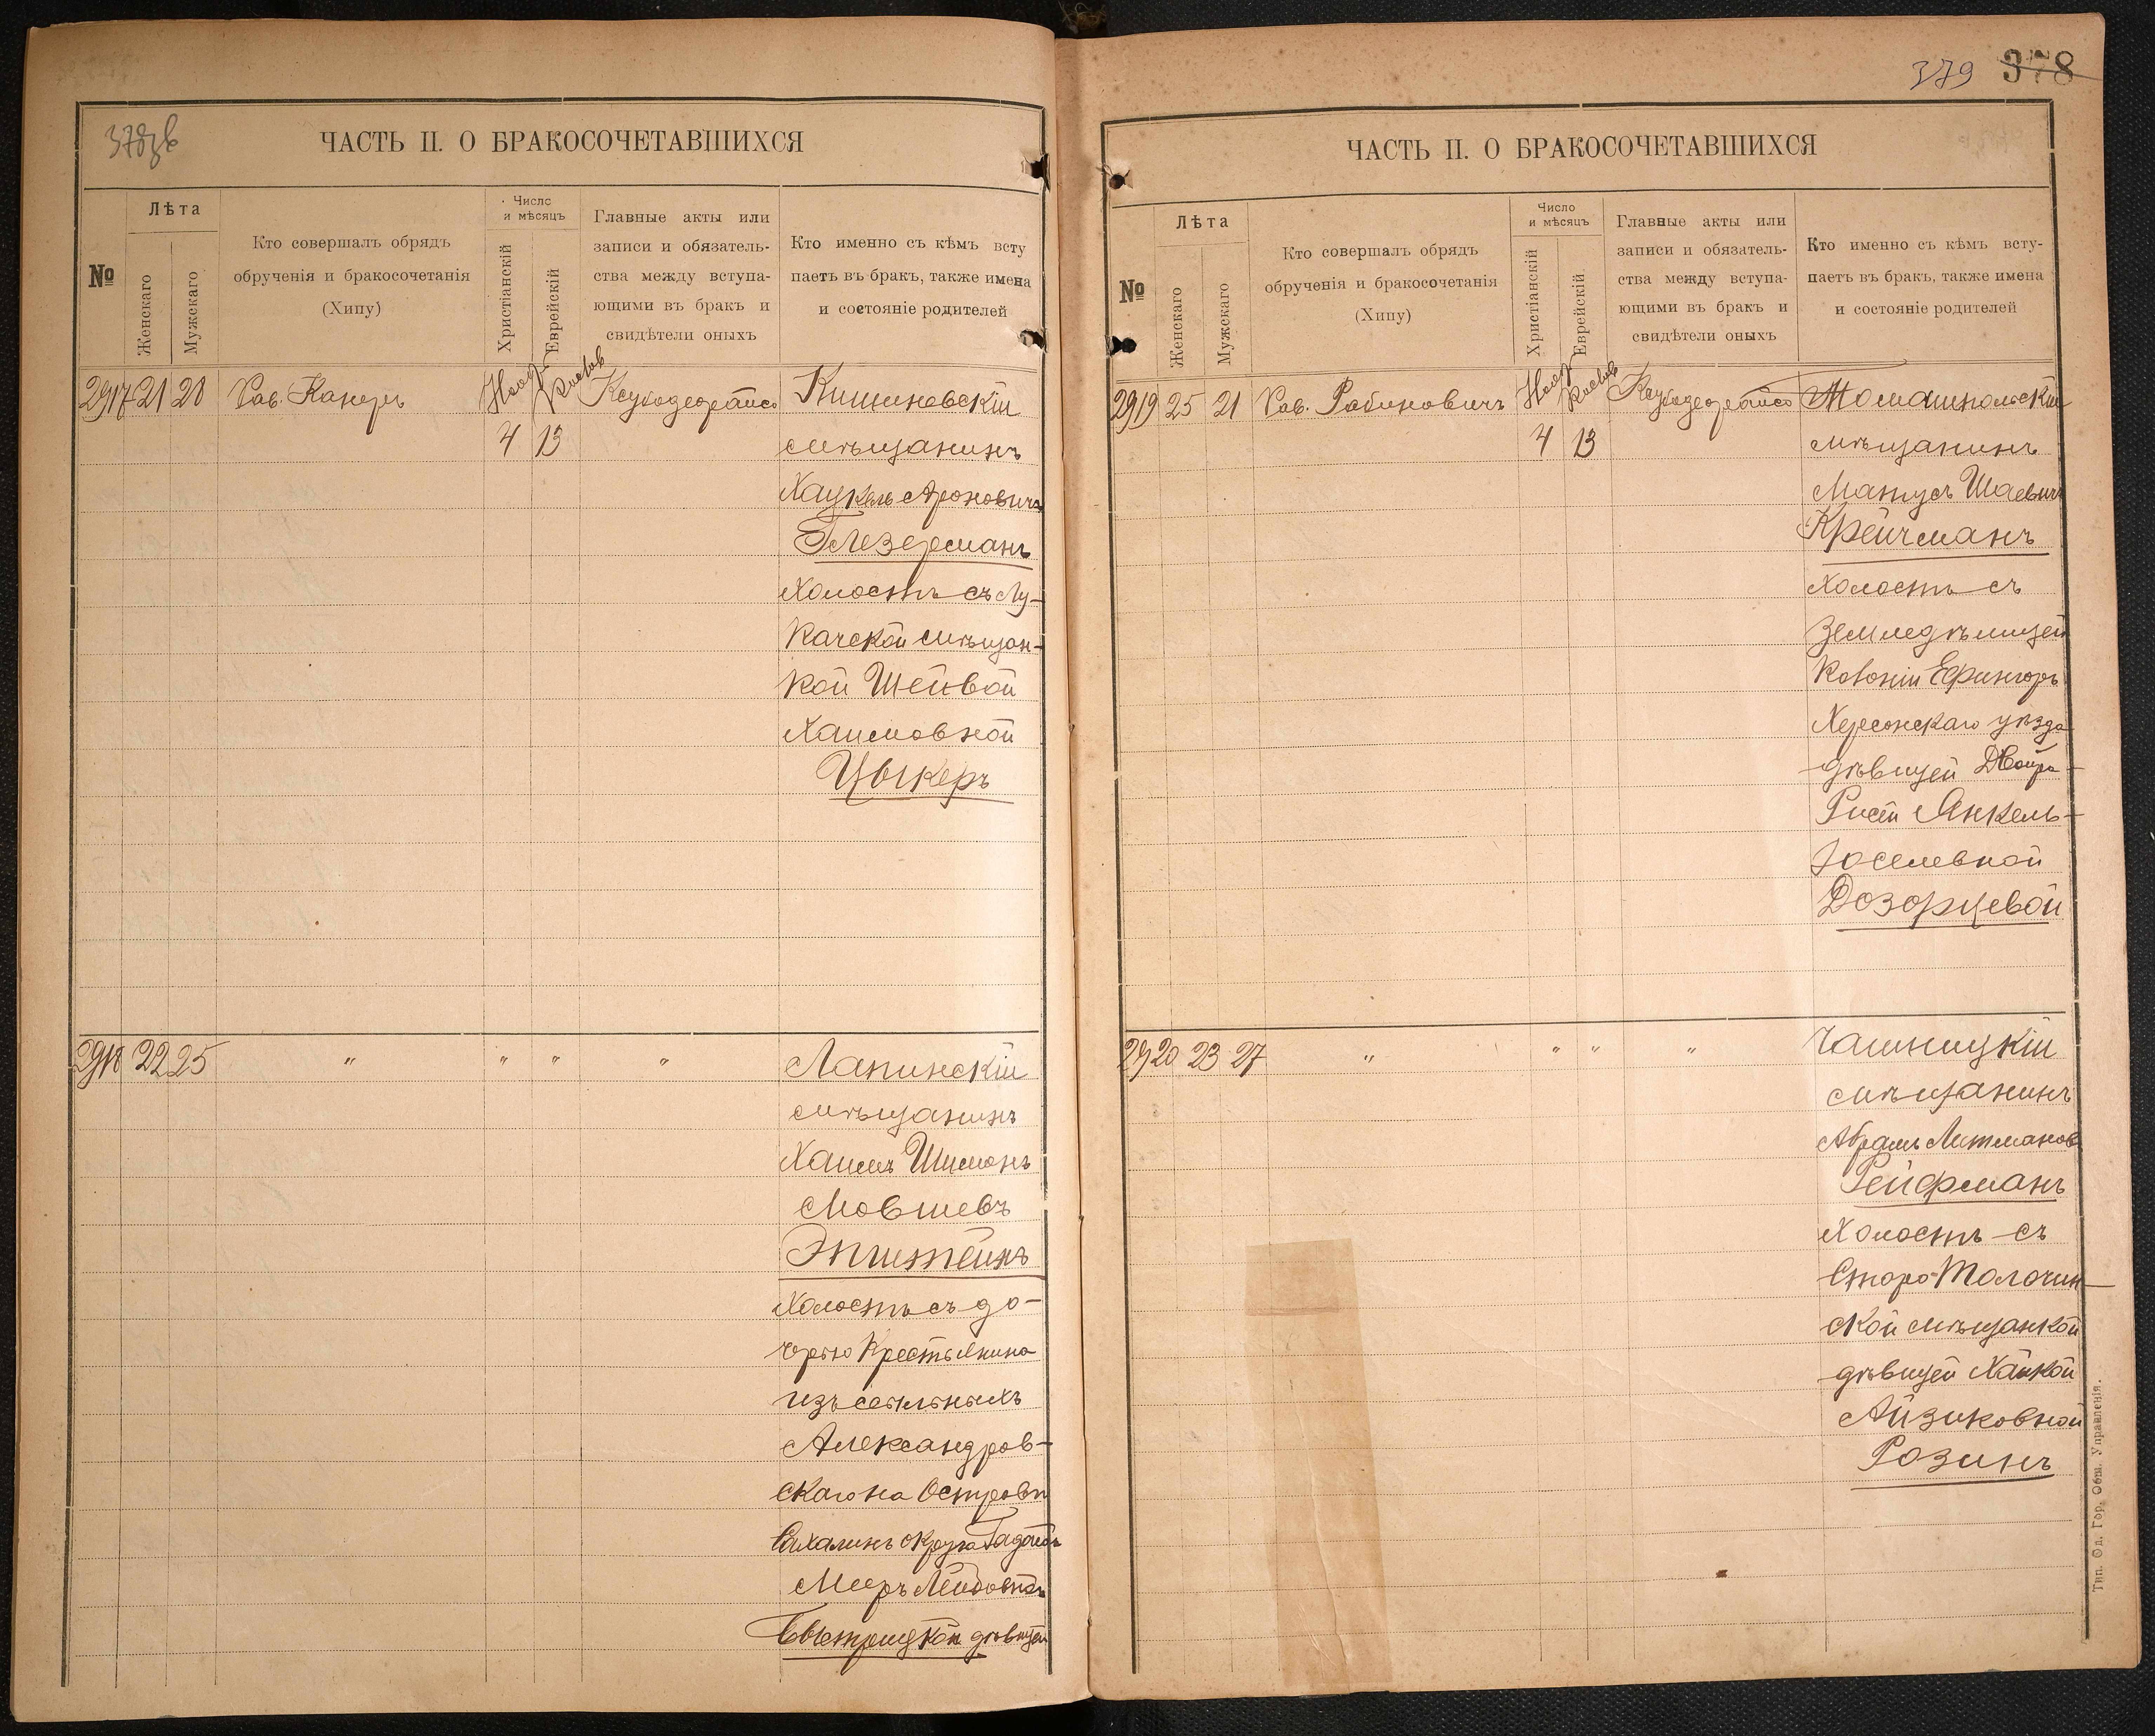 378
ЧАСТЬ II. О БРАКОСОЧЕТАВШИХСЯ
№
Лѣта
Женскаго
Мужскаго
Кто совершалъ обрядъ
обрученія и бракосочетанія
(Хипу)
Число
и мѣсяцъ
Христіанскій
Еврейскій
Главные акты или
записи и обязатель-
ства между вступа-
ющими въ бракъ и
свидѣтели оныхъ
Кто именно съ кѣмъ всту
паетъ въ бракъ, также имена
и состояніе родителей
2917 21 28 Рав. Канеръ Нояб. Кислев Кишиневскій
4 13 мѣщанинъ
Хацкель Ароновичъ
Глезерманъ
Холостъ съ Лу-
качской мѣщан-
кой Шейвой
Хаимовной
Цыкеръ
2918 22 25 " " " " Лапинскій
мѣщанинъ
Хаимъ Шимонъ
Мовшевъ
Эпштейнъ
Холостъ съ до-
черью Крестьянина
изъ ссыльныхъ
Александров-
скаго на Островѣ
Сахалинъ округа
Мееръ Лейбовной
Быстрицкой дѣвицей
379 378
ЧАСТЬ II. О БРАКОСОЧЕТАВШИХСЯ
№
Лѣта
Женскаго
Мужскаго
Кто совершалъ обрядъ
обрученія и бракосочетанія
(Хипу)
Число
и мѣсяцъ
Христіанскій
Еврейскій
Главные акты или
записи и обязатель-
ства между вступа-
ющими въ бракъ и
свидѣтели оныхъ
Кто именно съ кѣмъ всту-
паетъ въ бракъ, также имена
и состояніе родителей
2919 25 21 Рав. Рабиновичъ Нояб. Кислев Томашпольскій
4 13 мѣщанинъ
Манусъ Шаевичъ
Крейчманъ
Холостъ съ
Земледѣлицей
Колоніи Ефингоръ
Херсонскаго уѣзда
дѣвицей Двойра-
Рисей Янкель-
Іоселевной
Дозорцевой
2920 23 27 " " " " Чашницкій
мѣщанинъ
Абрамъ Литмановъ
Рейфманъ
Холостъ съ
Старо-Толочин-
ской мѣщанкой
дѣвицей Хайкой
Айзиковной
Розинъ
Тип. Од. Гор. Общ. Управленія.